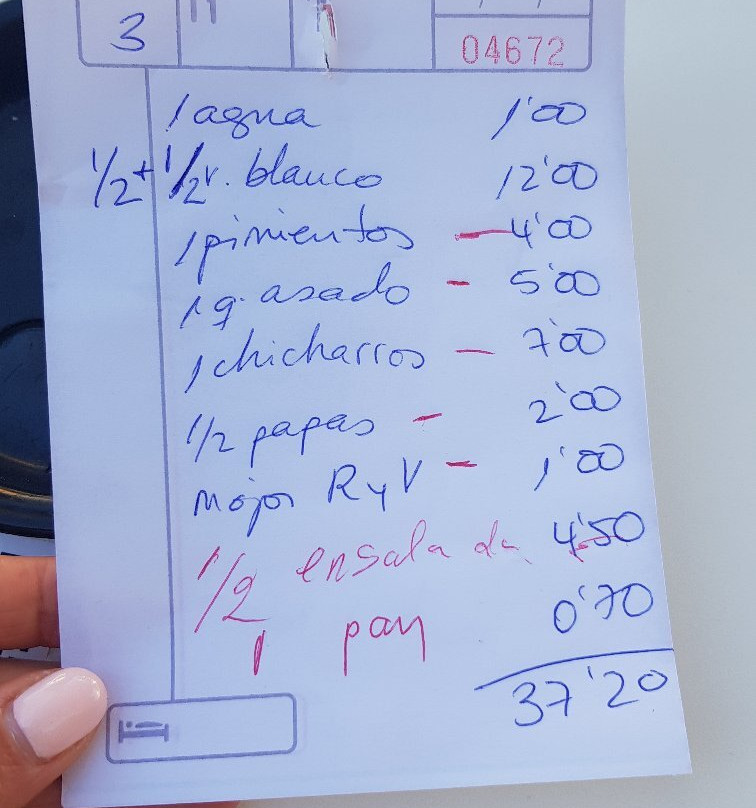 3
04672
1 agua 1'00
1/2 + 1/2 v. blanco 12'00
1 pimientos — 4'00
1 q. asado - 5'00
1 chicharros — 7'00
1/2 papas - 2'00
mojos R y V - 1'00
1/2 ensalada 4'50
1 pan 0'70
37'20